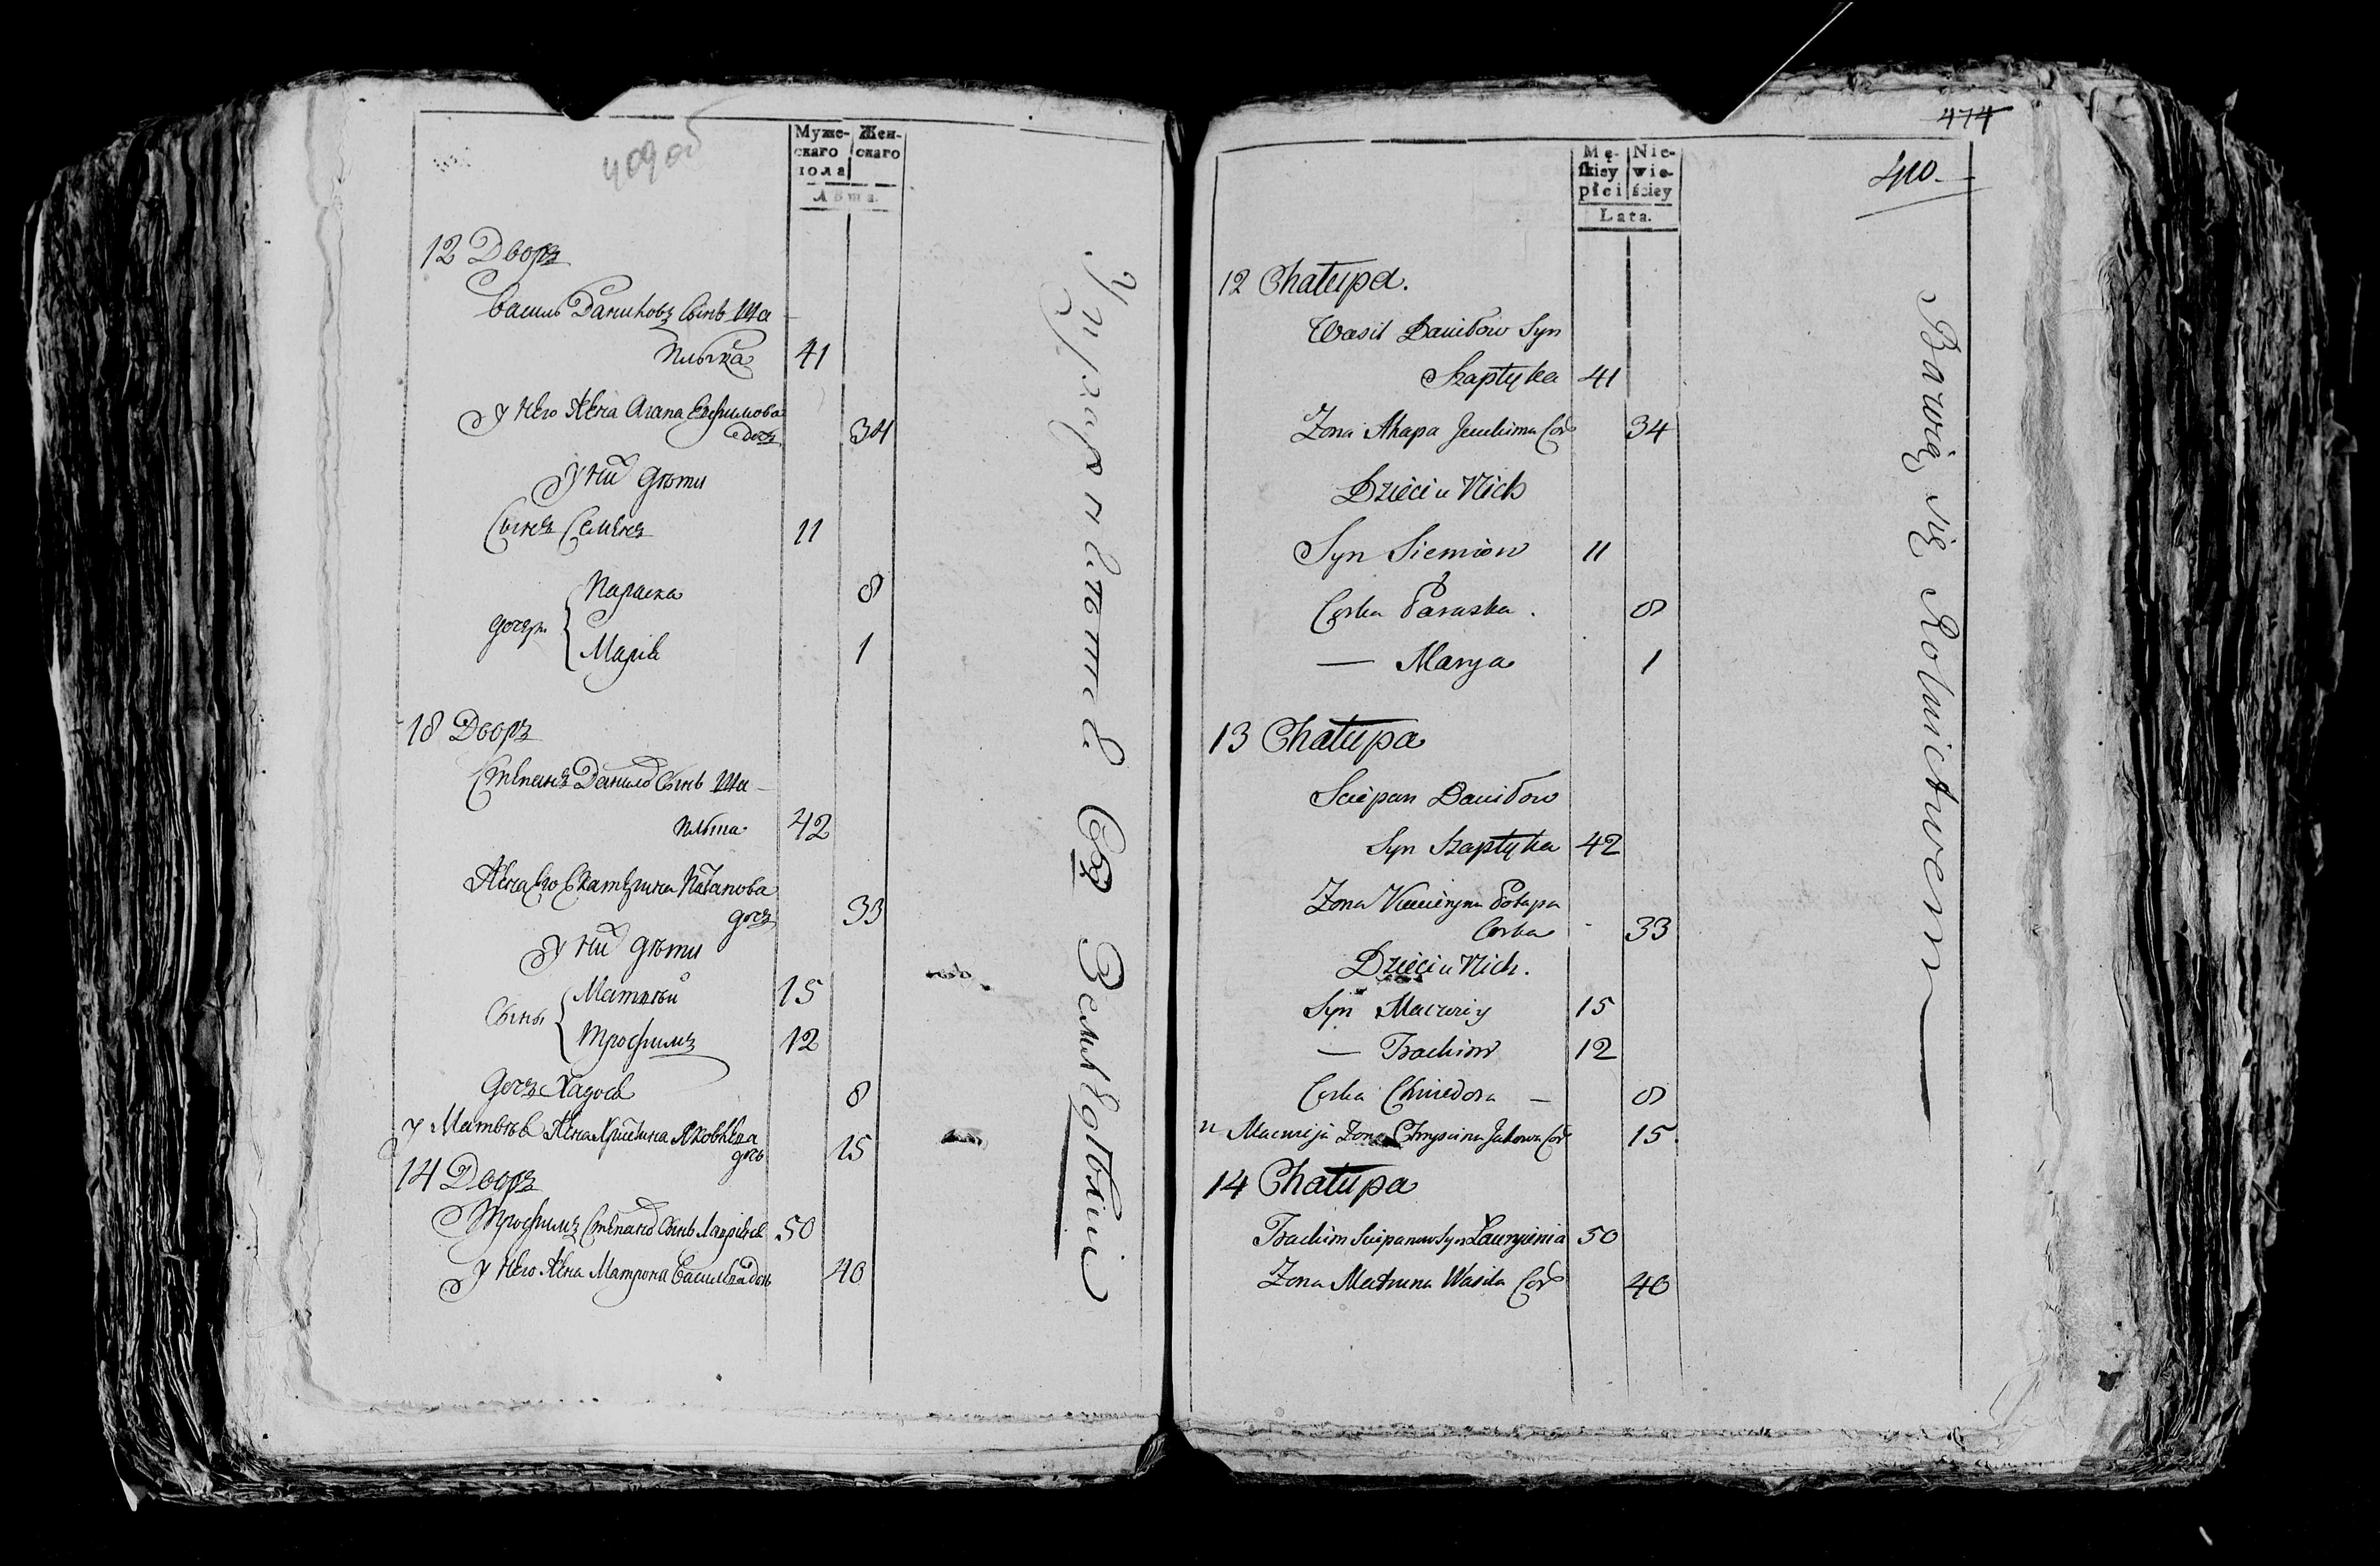 409 об
Муже- Жен-
скаго скаго
пола
Лѣта.
12 Дворъ
Василь Даниловъ сынъ Ша
плыка 41
У него Жена Агапа Ефимова
дочь 34
У них дѣти
Сынъ Семенъ 11
дочери
Параска 8
Марія 1
13 Дворъ
Степанъ Данилов Сынъ Ша-
плыка 42
Жена его Екатерина Патапова
дочь 33
У них дѣти
Сыны
Матвѣй 15
Трофимъ 12
дочь Хадося 8
У Матвѣя Жена Христина Яковлева
дочь 15
14 Дворъ
Трофимъ Степанов Сынъ 50
У него Жена Матрона Васильева дочь 40
Упражняются Въ Земледѣліи
474
410.
Mę- Nie-
skiey wie-
płci ściey
Lata.
12 Chałupa.
Wasil Daniłow Syn
Szapłyka 41
Zona Ahapa Jeuchima Cor 34
Dzieci u Nich
Syn Siemion 11
Corka Paraska. 8
— Marya 1
13 Chałupa
Sciepan Daniłow
Syn Szapłyka 42
Zona Potapa
Corka 33
Dzieci u Nich.
Syn Maćwiey 15
— Trachim 12
Corka Chwiedora — 8
u Maćwieja Zona Chryscina Jakowa Cor 15.
14 Chałupa
Trachim Sciepanow Syn Ławrynienia 50
Zona Matruna Wasila Cor 40
Bawią się Rolnictwem